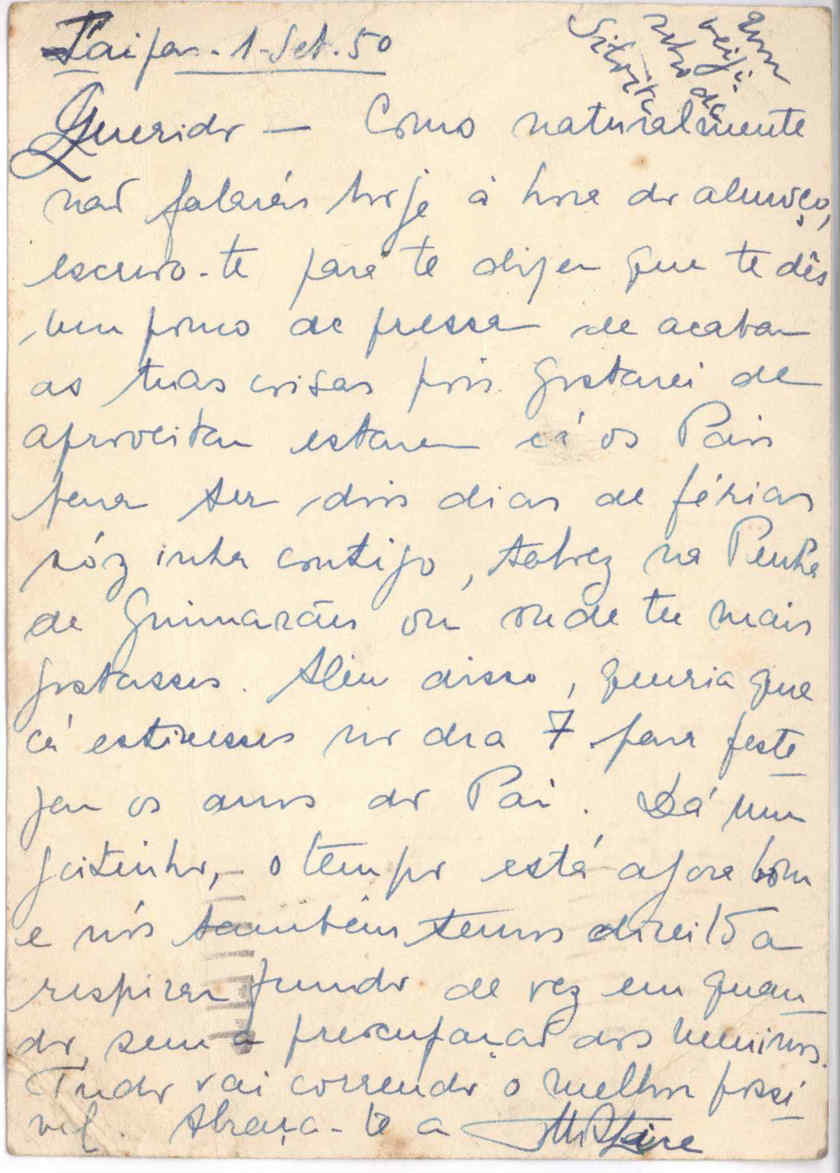 Taipas - 1-Set. 50
Querido — Como naturalmente
não falarás hoje à hora do almoço,
escrevo-te para te dizer que te dês
um pouco de pressa de acabar
as tuas coisas pois gostarei de
aproveitar estarem cá os Pais
para ter dois dias de férias
sózinha contigo, talvez na Penha
de Guimarães ou onde tu mais
gostasses. Além disso, queria que
cá estivesses no dia 7 para feste
jar os anos do Pai. Dá um
jeitinho, - o tempo está agora bom
e nós também temos direito a
respirar fundo de vez em quan
do, sem a preocupação dos meninos.
Tudo vai correndo o melhor possí
vel. Abraça-te a
Silvita